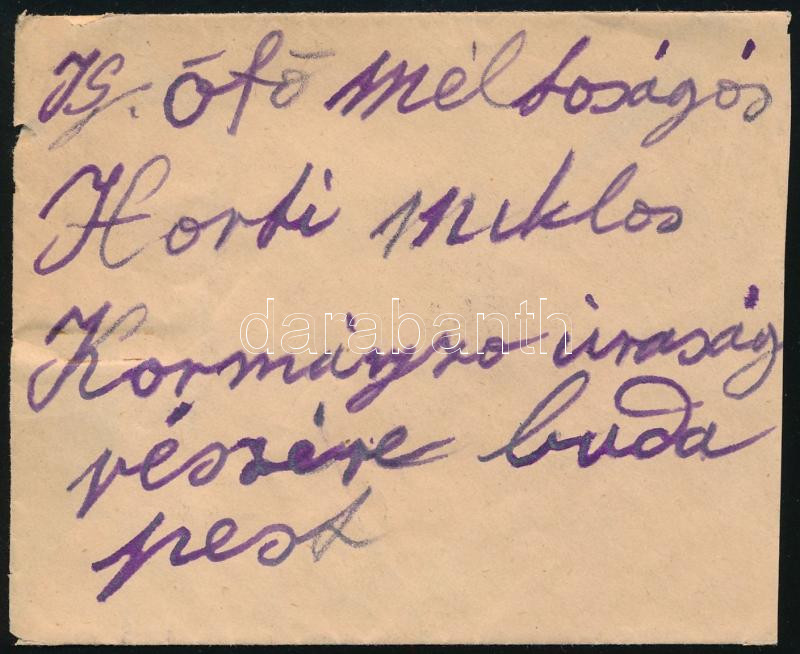 IG. ófő méltoságós
Horti Miklos
Kormányzo úraság
részére buda
pest
darabanth